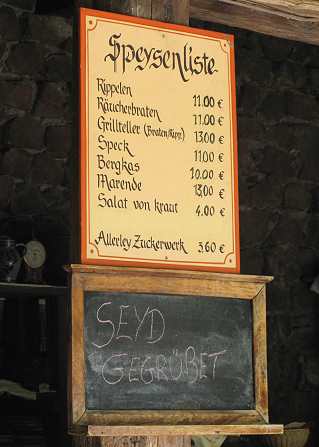 Speysenliste
Rippelen 11.00 €
Räucherbraten 11.00 €
Grillteller (Braten/Ripp.) 13.00 €
Speck 11.00 €
Bergkas 10.00 €
Marende 13.00 €
Salat von kraut 4.00 €
Allerley Zuckerwerk 3.60 €
SEYD
GEGRÜßET